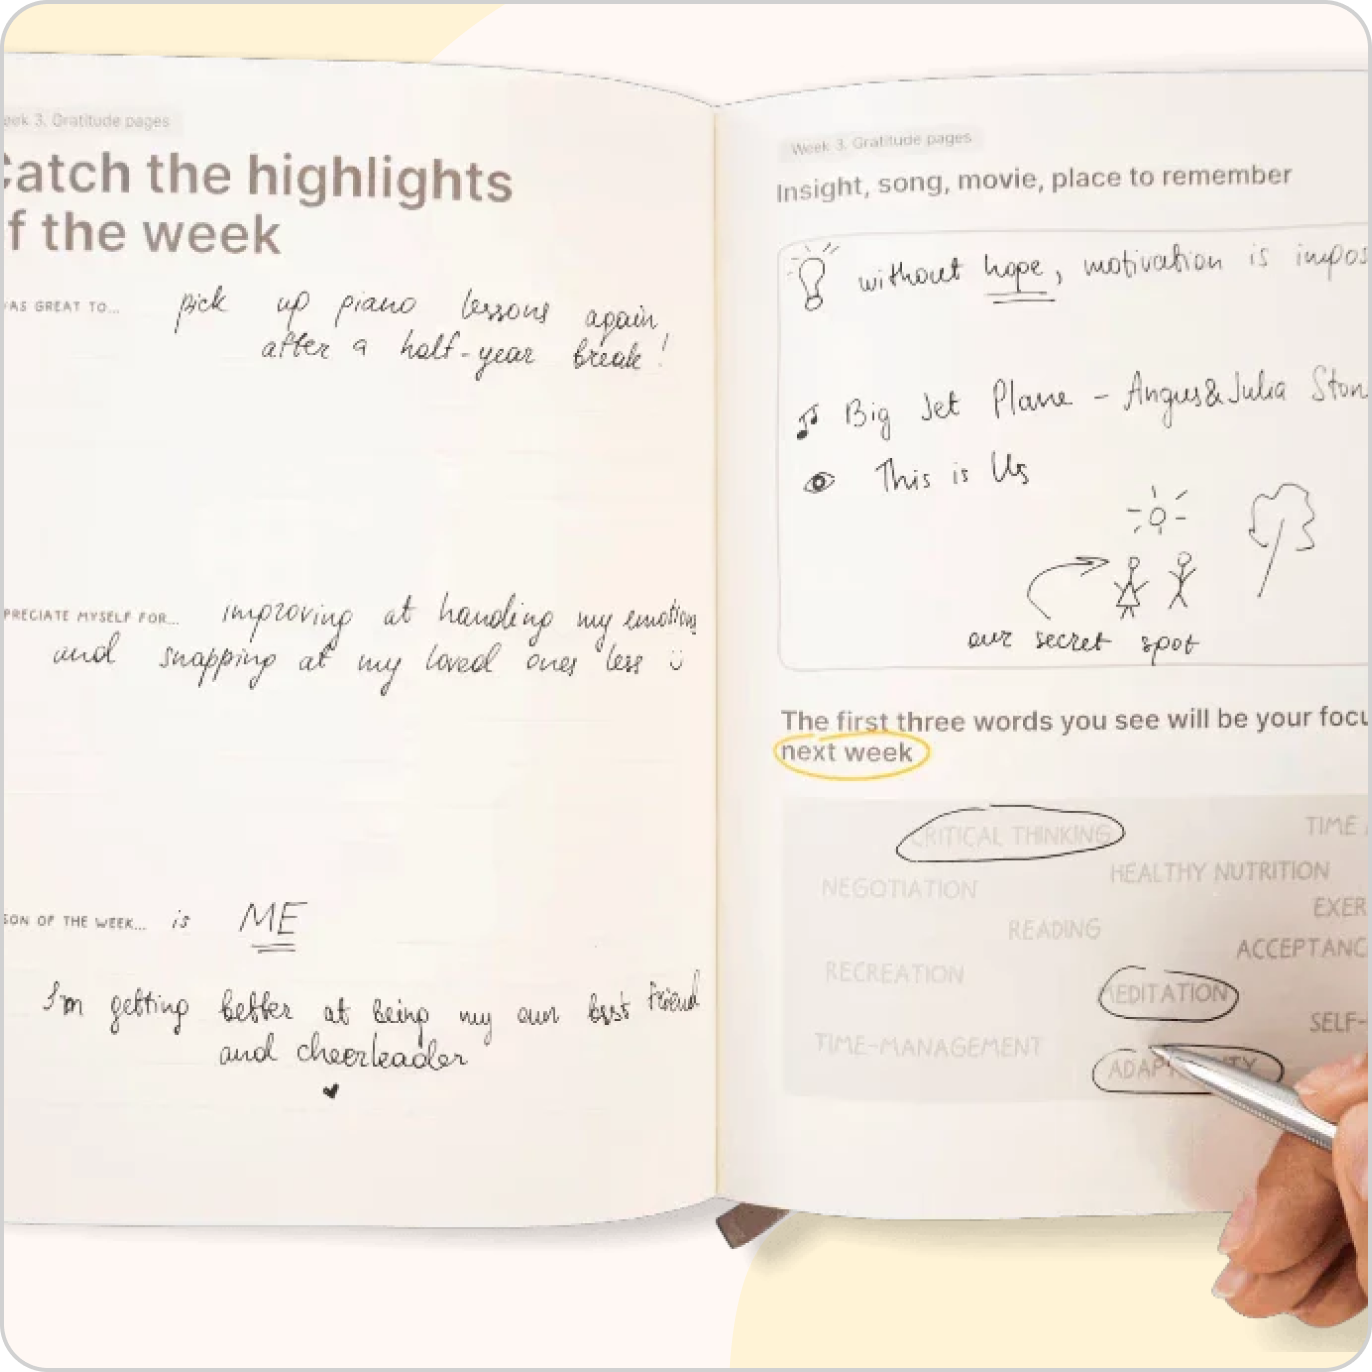 eek 3. Gratitude pages
Catch the highlights
f the week
AS GREAT TO... pick up piano lessons again
after a half-year break!
PRECIATE MYSELF FOR... improving at handling my emotions
and snapping at my loved ones less
SON OF THE WEEK... is ME
I'm getting better at being my own best friend
and cheerleader
Week 3. Gratitude pages
Insight, song, movie, place to remember
without hope, motivation is impos
Big Jet Plane - Angus&Julia Ston
This is Us
our secret spot
The first three words you see will be your focu
next week
CRITICAL THINKING
TIME
HEALTHY NUTRITION
NEGOTIATION
EXER
READING
ACCEPTANC
RECREATION
MEDITATION
SELF-
TIME-MANAGEMENT
ADAP ITY